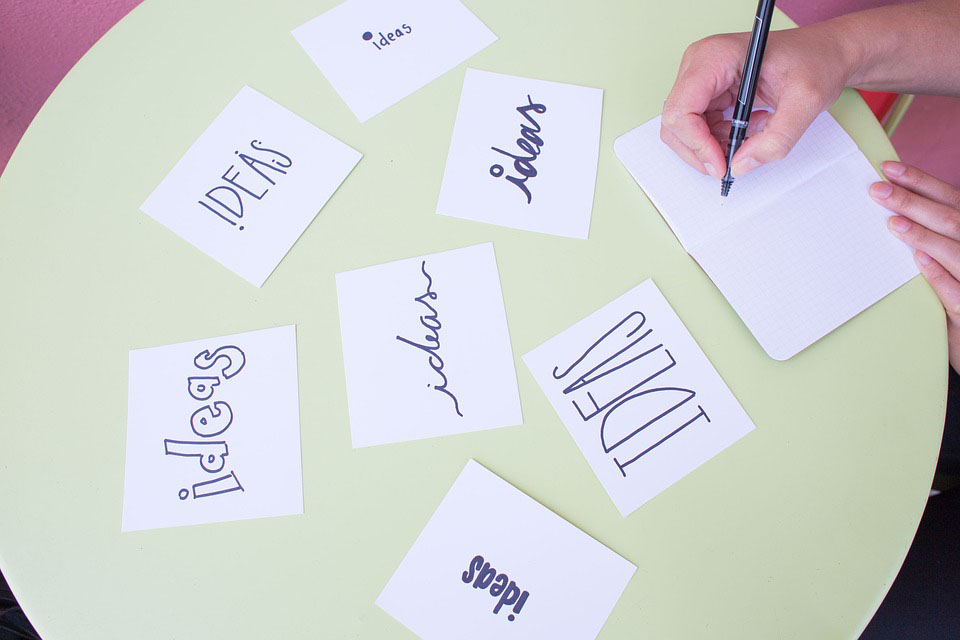 ideas
!DEAS
ideas
ideas
ideas
IDEAS
ideas